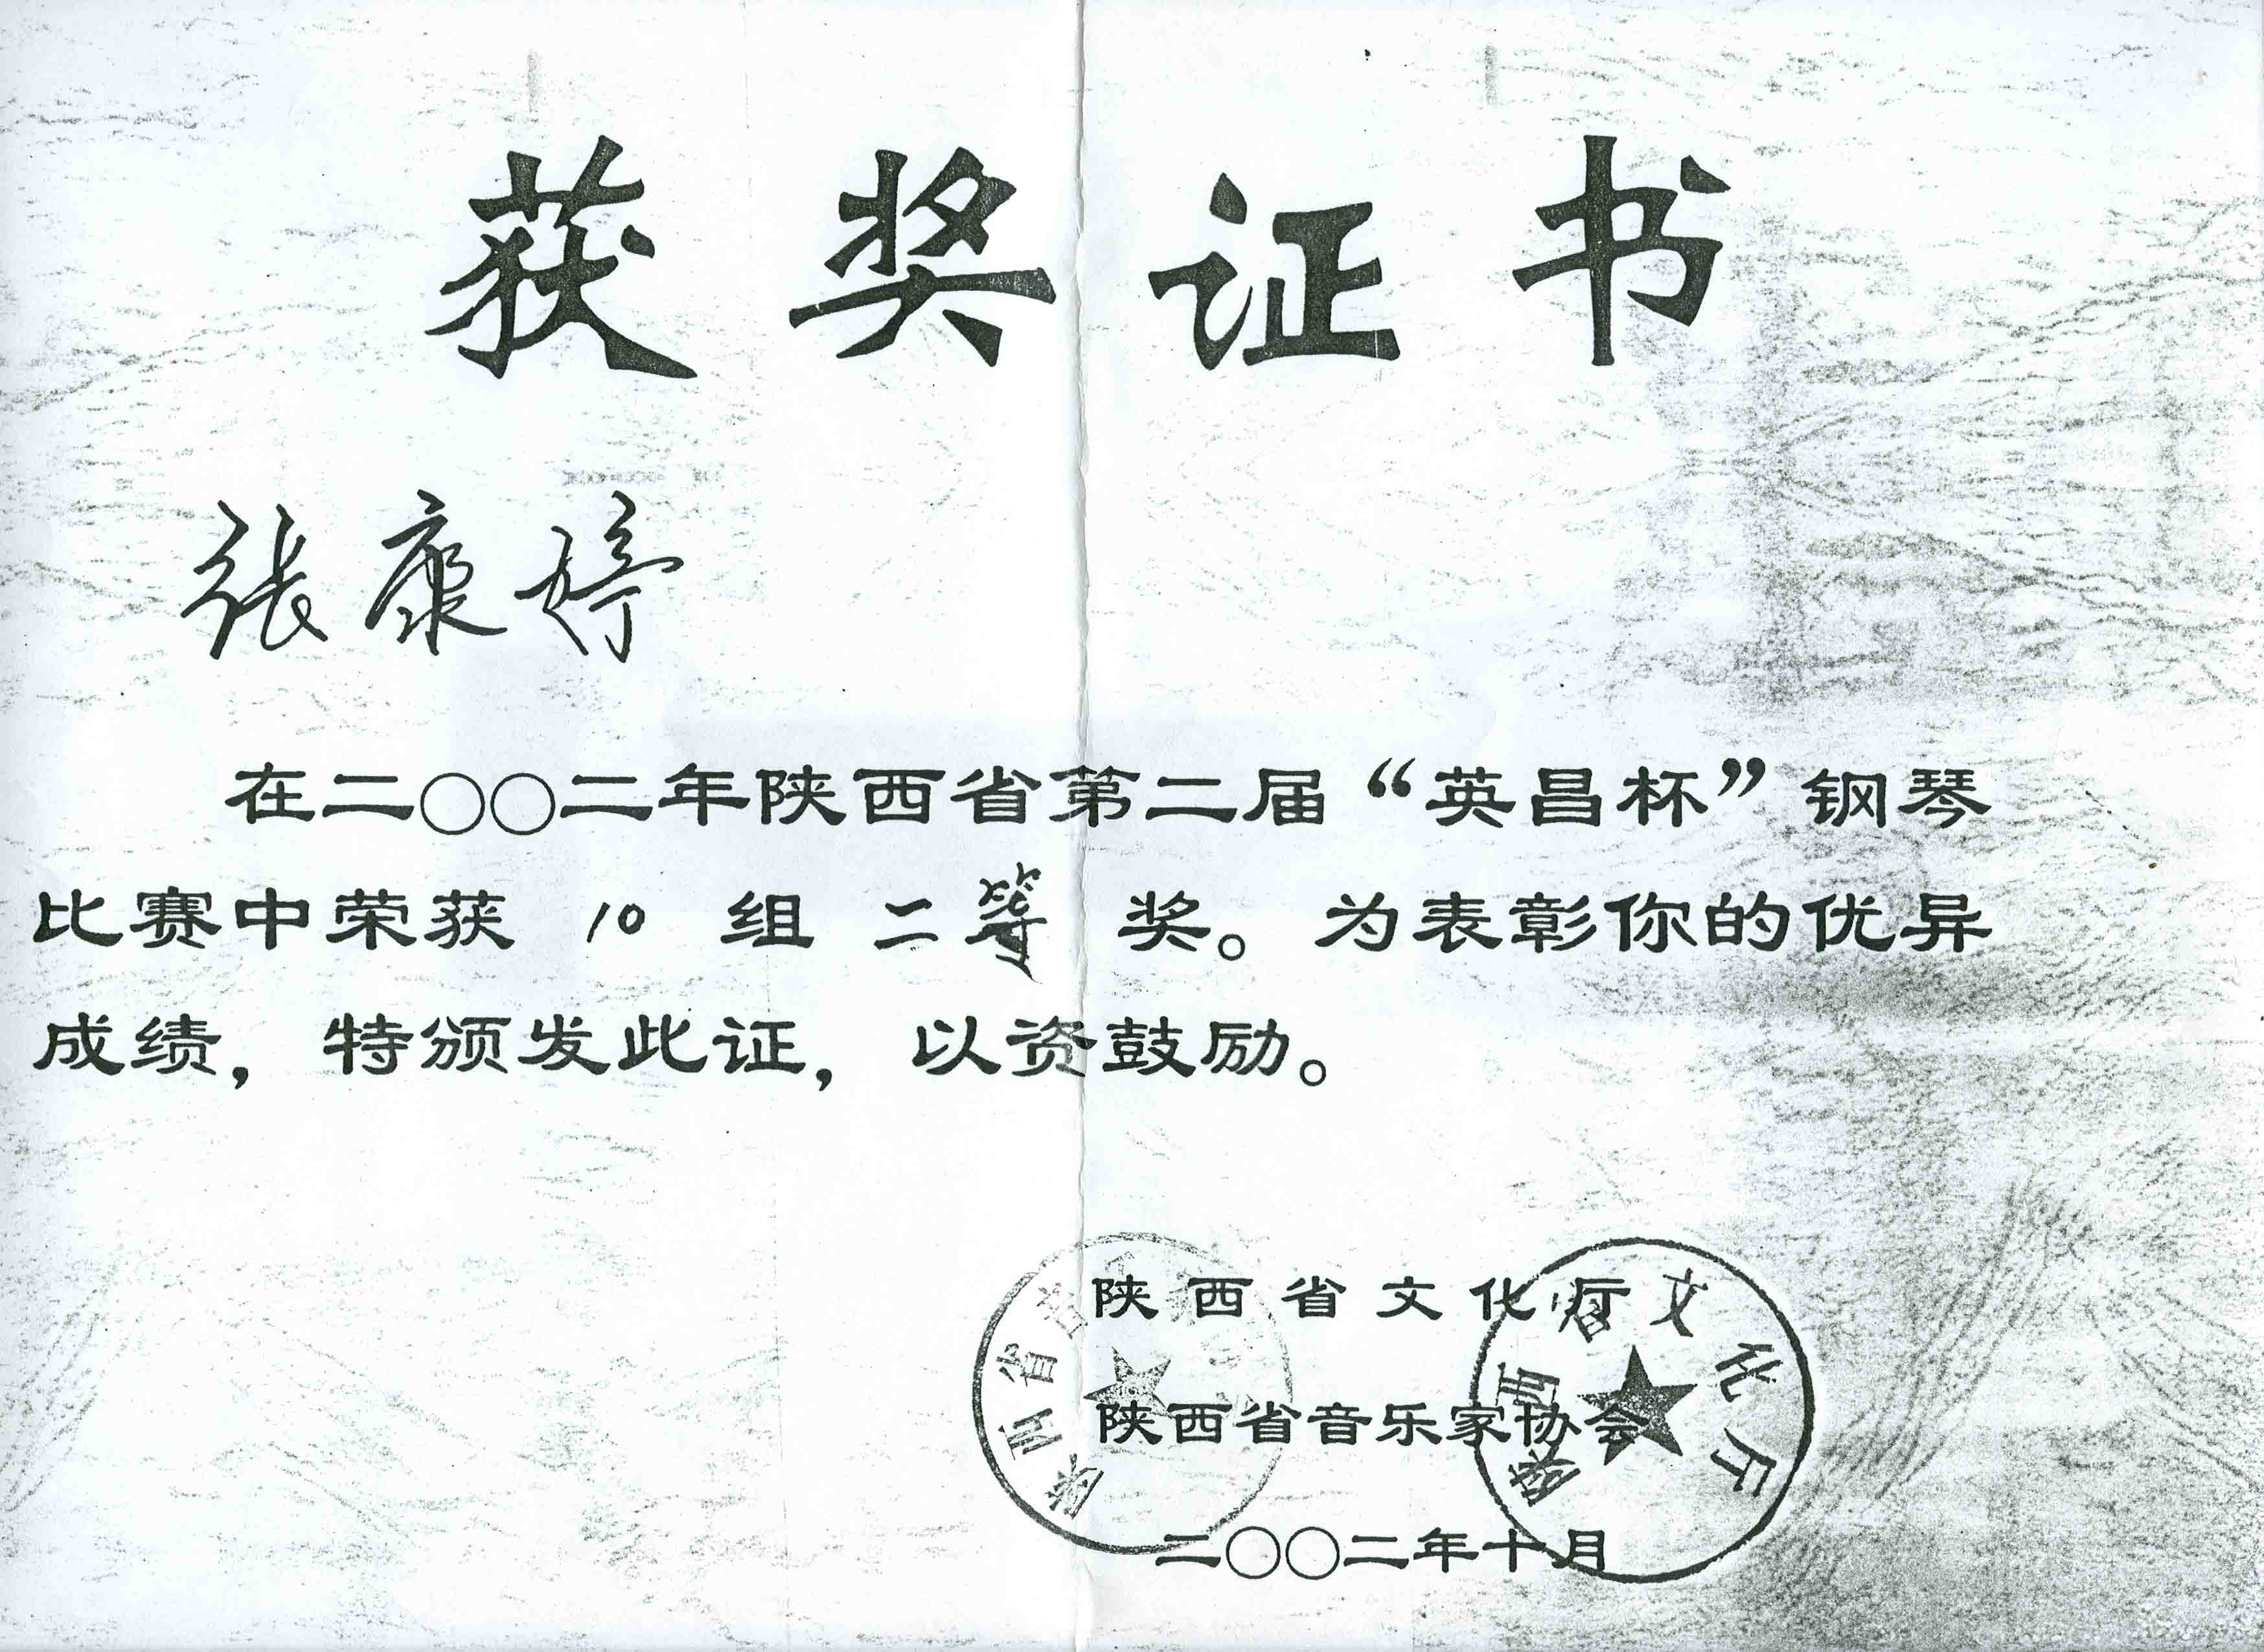 获奖证书
张康婷
在二〇〇二年陕西省第二届“英昌杯”钢琴
比赛中荣获 10 组 二等 奖。为表彰你的优异
成绩，特颁发此证，以资鼓励。
陕西省文化厅
陕西省音乐家协会
二〇〇二年十月
陕西省音
陕西省文化厅